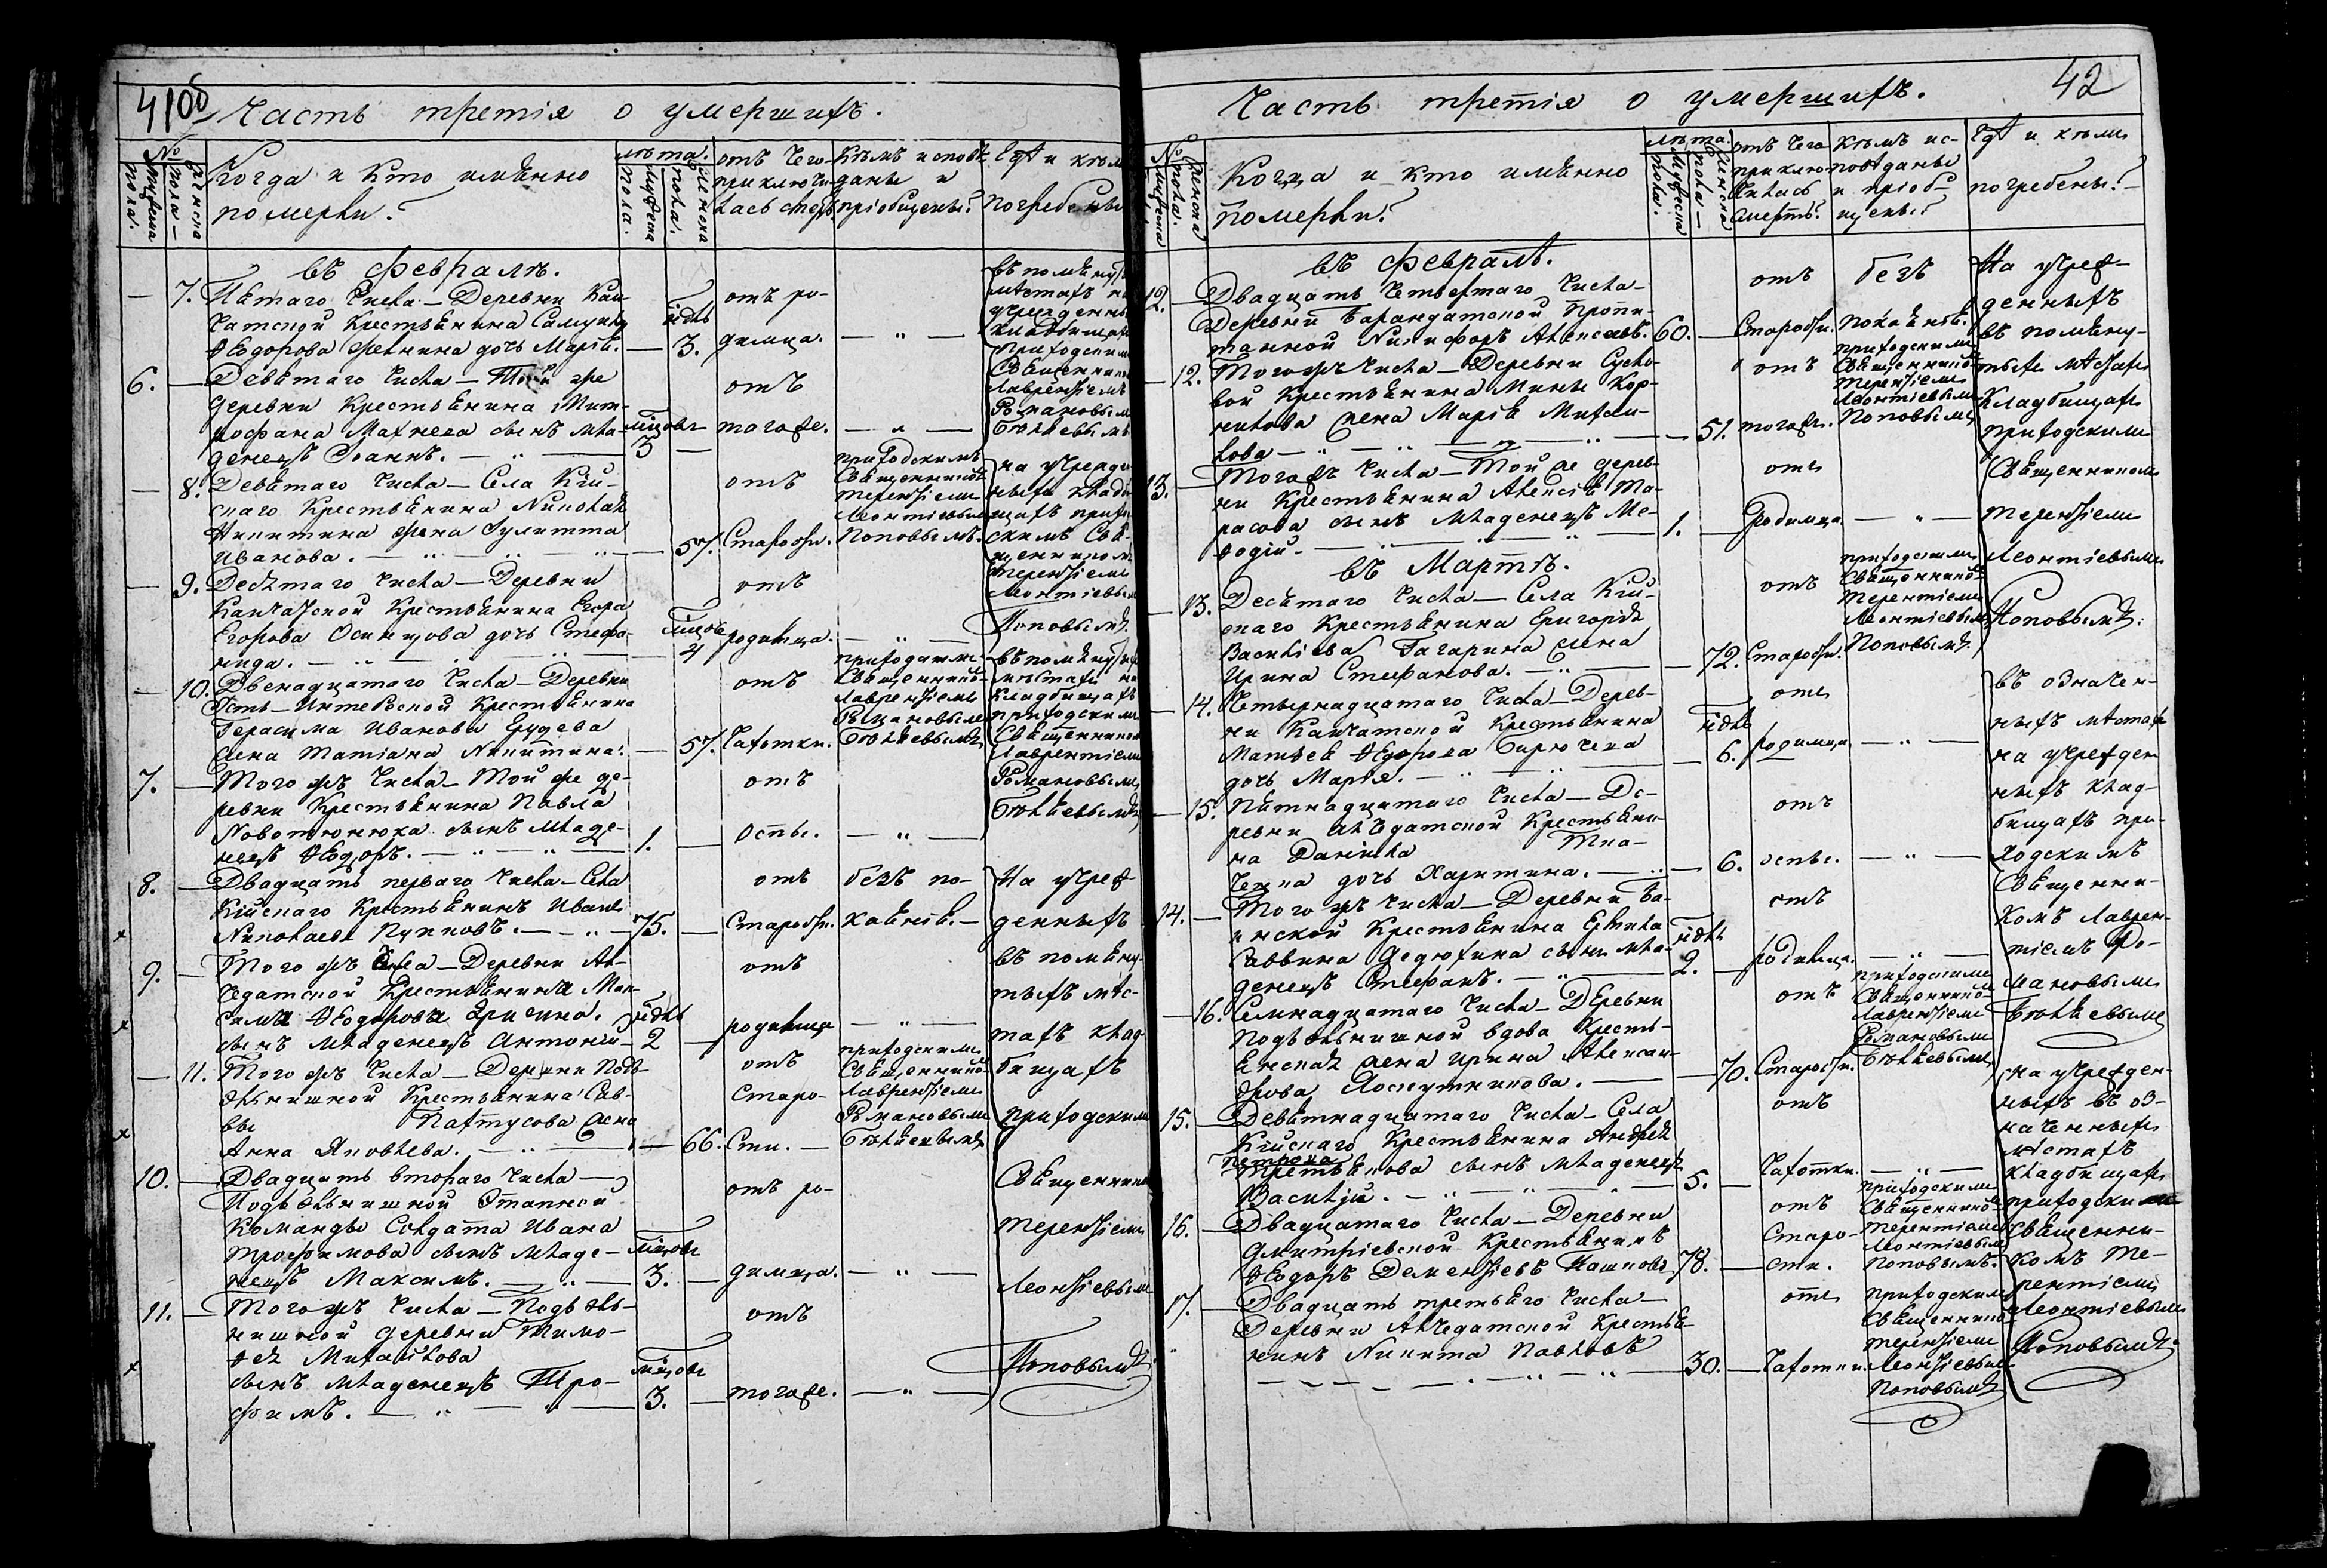 41об
Часть третія о умершихъ.
№
мужеска пола.
женска пола
Когда и кто имянно
померли?
лѣта.
мужеска пола.
женска пола.
отъ чего
приключи-
лась смерть
Кѣмъ исповѣ-
даны и
пріобщены?
Гдѣ и кѣмъ
погребены
въ Февралѣ.
— 7. Пятаго числа — Деревни Кай-
чатской Крестьянина
Ѳедорова дочь Марія. — 3. отъ ро-
димца. — " —
въ помянут
мѣстахъ на
учрежденн
кладбищахъ
приходскимъ
Священником
Лаврентіемъ
Романовым
Бѣляевымъ
6. — Девятаго числа — Той же
деревни Крестьянина Мит-
рофана Махнева сынъ мла-
денецъ Іоаннъ. — " — мѣсцовъ 3 —
отъ
тогоже. — " —
— 8. Девятаго числа — Села Кій-
скаго Крестьянина Николая
Никитина жена Іулитта
Иванова. — " — " — 57.
отъ
Старости.
приходскимъ
Священникомъ
Терентіемъ
Леонтіевымъ
Поповымъ.
на учрежден
ныхъ клад
щахъ прихо
скимъ Свя-
щенником
Терентіемъ
Леонтіевым
Поповымъ.
— 9. Десятаго числа — Деревни
Кайчатской Крестьянина Егора
Егорова Осинцова дочь Стефа-
нида. — " — " — мѣсцовъ
отъ
родимца. — " —
— 10. Двенадцатаго числа — Деревни
Усть-Интеской Крестьянина
Герасима Иванова
жена Татіана Никитина. — 57.
отъ
Чахотки.
приходскимъ
Священнико-
Лаврентіемъ
Романовымъ
Бѣляевымъ
въ помянуты
мѣстахъ на
кладбищахъ
приходским
Священником
Лаврентіемъ
Романовымъ
Бѣляевымъ
7. — Того жъ числа — Той же де-
ревни Крестьянина Павла
сынъ младе-
нецъ Ѳедоръ. — " — " — 1. —
отъ
Оспы. — " —
8. — Двадцать перваго числа — Села
Кійскаго Крестьянинъ Иванъ
Николаевъ — " — 75. —
отъ
Старости.
безъ по-
каянія. —
На учреж-
денныхъ
въ помяну-
тыхъ мѣс-
тахъ клад-
бищахъ
приходскимъ
Священником
Терентіемъ
Леонтіевымъ
Поповымъ
9. — Того жъ числа — Деревни Ал-
чедатской Крестьянина Мак-
сима Ѳедорова
сынъ младенецъ Антоній — нѣдѣль 2 —
отъ
родимца — " —
11. — Того жъ числа — Деревни Подъ-
ельнишной Крестьянина Сав-
вы Пахтусова жена
Анна Яковлева. — " — 66.
отъ
Старо-
сти. —
приходскимъ
Священнико-
Лаврентіемъ
Романовымъ
Бѣляевымъ
10. — Двадцать втораго числа —
Подъельнишной Этапной
Команды Солдата Ивана
Трофимова сынъ младе-
нецъ Максимъ. — " — мѣсцовъ 3. —
отъ ро-
димца. — " —
11. — Того жъ числа — Подъель-
нишной деревни Тимо-
ѳея Михайлова
сынъ младенецъ Тро-
фимъ. — " — " — мѣсцовъ 3. —
отъ
тогоже. — " —
42
Часть третія о умершихъ.
№
мужеска пола.
женска пола.
Когда и кто имянно
померли?
лѣта.
мужеска пола.
женска пола —
отъ чего
приклю-
чилась
смерть?
кѣмъ ис-
повѣданы
и пріоб-
щены?
Гдѣ и кѣмъ
погребены? —
въ Февралѣ.
12. — Двадцать четвертаго числа —
Деревни Барандатской Пропи-
танной Никифоръ Алексѣевъ. 60. —
отъ
Старости.
безъ
покаянія.
На учреж-
денныхъ
въ помяну-
тыхъ мѣстахъ
Кладбищахъ
приходскимъ
Священникомъ
Терентіемъ
Леонтіевымъ
Поповымъ.
— 12. Того жъ числа — Деревни Сусло-
вой Крестьянина Мины Кор-
нилова жена Марія Михай-
лова — " — " — 51.
отъ
тогожъ.
приходскимъ
Священнико-
Терентіемъ
Леонтіевымъ
Поповымъ
13. — Того жъ числа — Той же дерев-
ни Крестьянина Алексія
сынъ младенецъ Ме-
ѳодій. — " — " — 1. —
отъ
Родимца — " —
въ Мартѣ.
— 13. Десятаго числа — Села Кій-
скаго Крестьянина Григорія
Василіева Гагарина жена
Ирина Стефанова. — " — 72.
отъ
Старости.
приходскимъ
Священнико-
Терентіемъ
Леонтіевымъ
Поповымъ.
— 14. Четырнадцатаго числа — Дерев-
ни Кайчатской Крестьянина
Матвея Ѳедорова Бирючева
дочь Марія. — " — " — нѣдѣль 6.
отъ
родимца — " —
въ означен-
ныхъ мѣстахъ
на учрежден
ныхъ клад-
бищахъ при-
ходскимъ
Священни-
комъ Лаврен-
тіемъ Ро-
мановымъ
Бѣляевымъ
— 15. Пятнадцатаго числа — Де-
ревни Алчедатской Крестьяни-
на Даніила Тка-
ченка дочь Харитина. — " — 6.
отъ
оспы. — " —
14. — Того жъ числа — Деревни Ба-
имской Крестьянина
Саввина Дедюхина сынъ мла-
денецъ Стефанъ. — " — нѣдѣль 2. —
отъ
родимца. — " —
— 16. Семнадцатаго числа — Деревни
Подъельнишной вдова Кресть-
янская жена Ирина Алексан-
дрова Лоскутникова. — 70.
отъ
Старости.
приходскимъ
Священнико-
Лаврентіемъ
Романовымъ
Бѣляевымъ
15. — Девятнадцатаго числа — Села
Кійскаго Крестьянина Андрея
Петрова
Третьякова сынъ младенецъ
Василій. — " — " — 5. —
отъ
Чахотки. — " —
на учрежден-
ныхъ въ оз-
наченныхъ
мѣстахъ
кладбищахъ
приходским
Священни-
комъ Те-
рентіемъ
Леонтіевымъ
Поповымъ.
16. — Двадцатаго числа — Деревни
Дмитріевской Крестьянинъ
Ѳедоръ Дементіевъ Пашковъ. 78. —
отъ
Старо-
сти.
приходскимъ
Священнико-
Терентіемъ
Леонтіевымъ
Поповымъ.
17. — Двадцать третьяго числа —
Деревни Алчедатской Крестья-
нинъ Никита Павловъ
— " — " — 30. —
отъ
Чахотки.
приходскимъ
Священнико-
Терентіемъ
Леонтіевымъ
Поповымъ